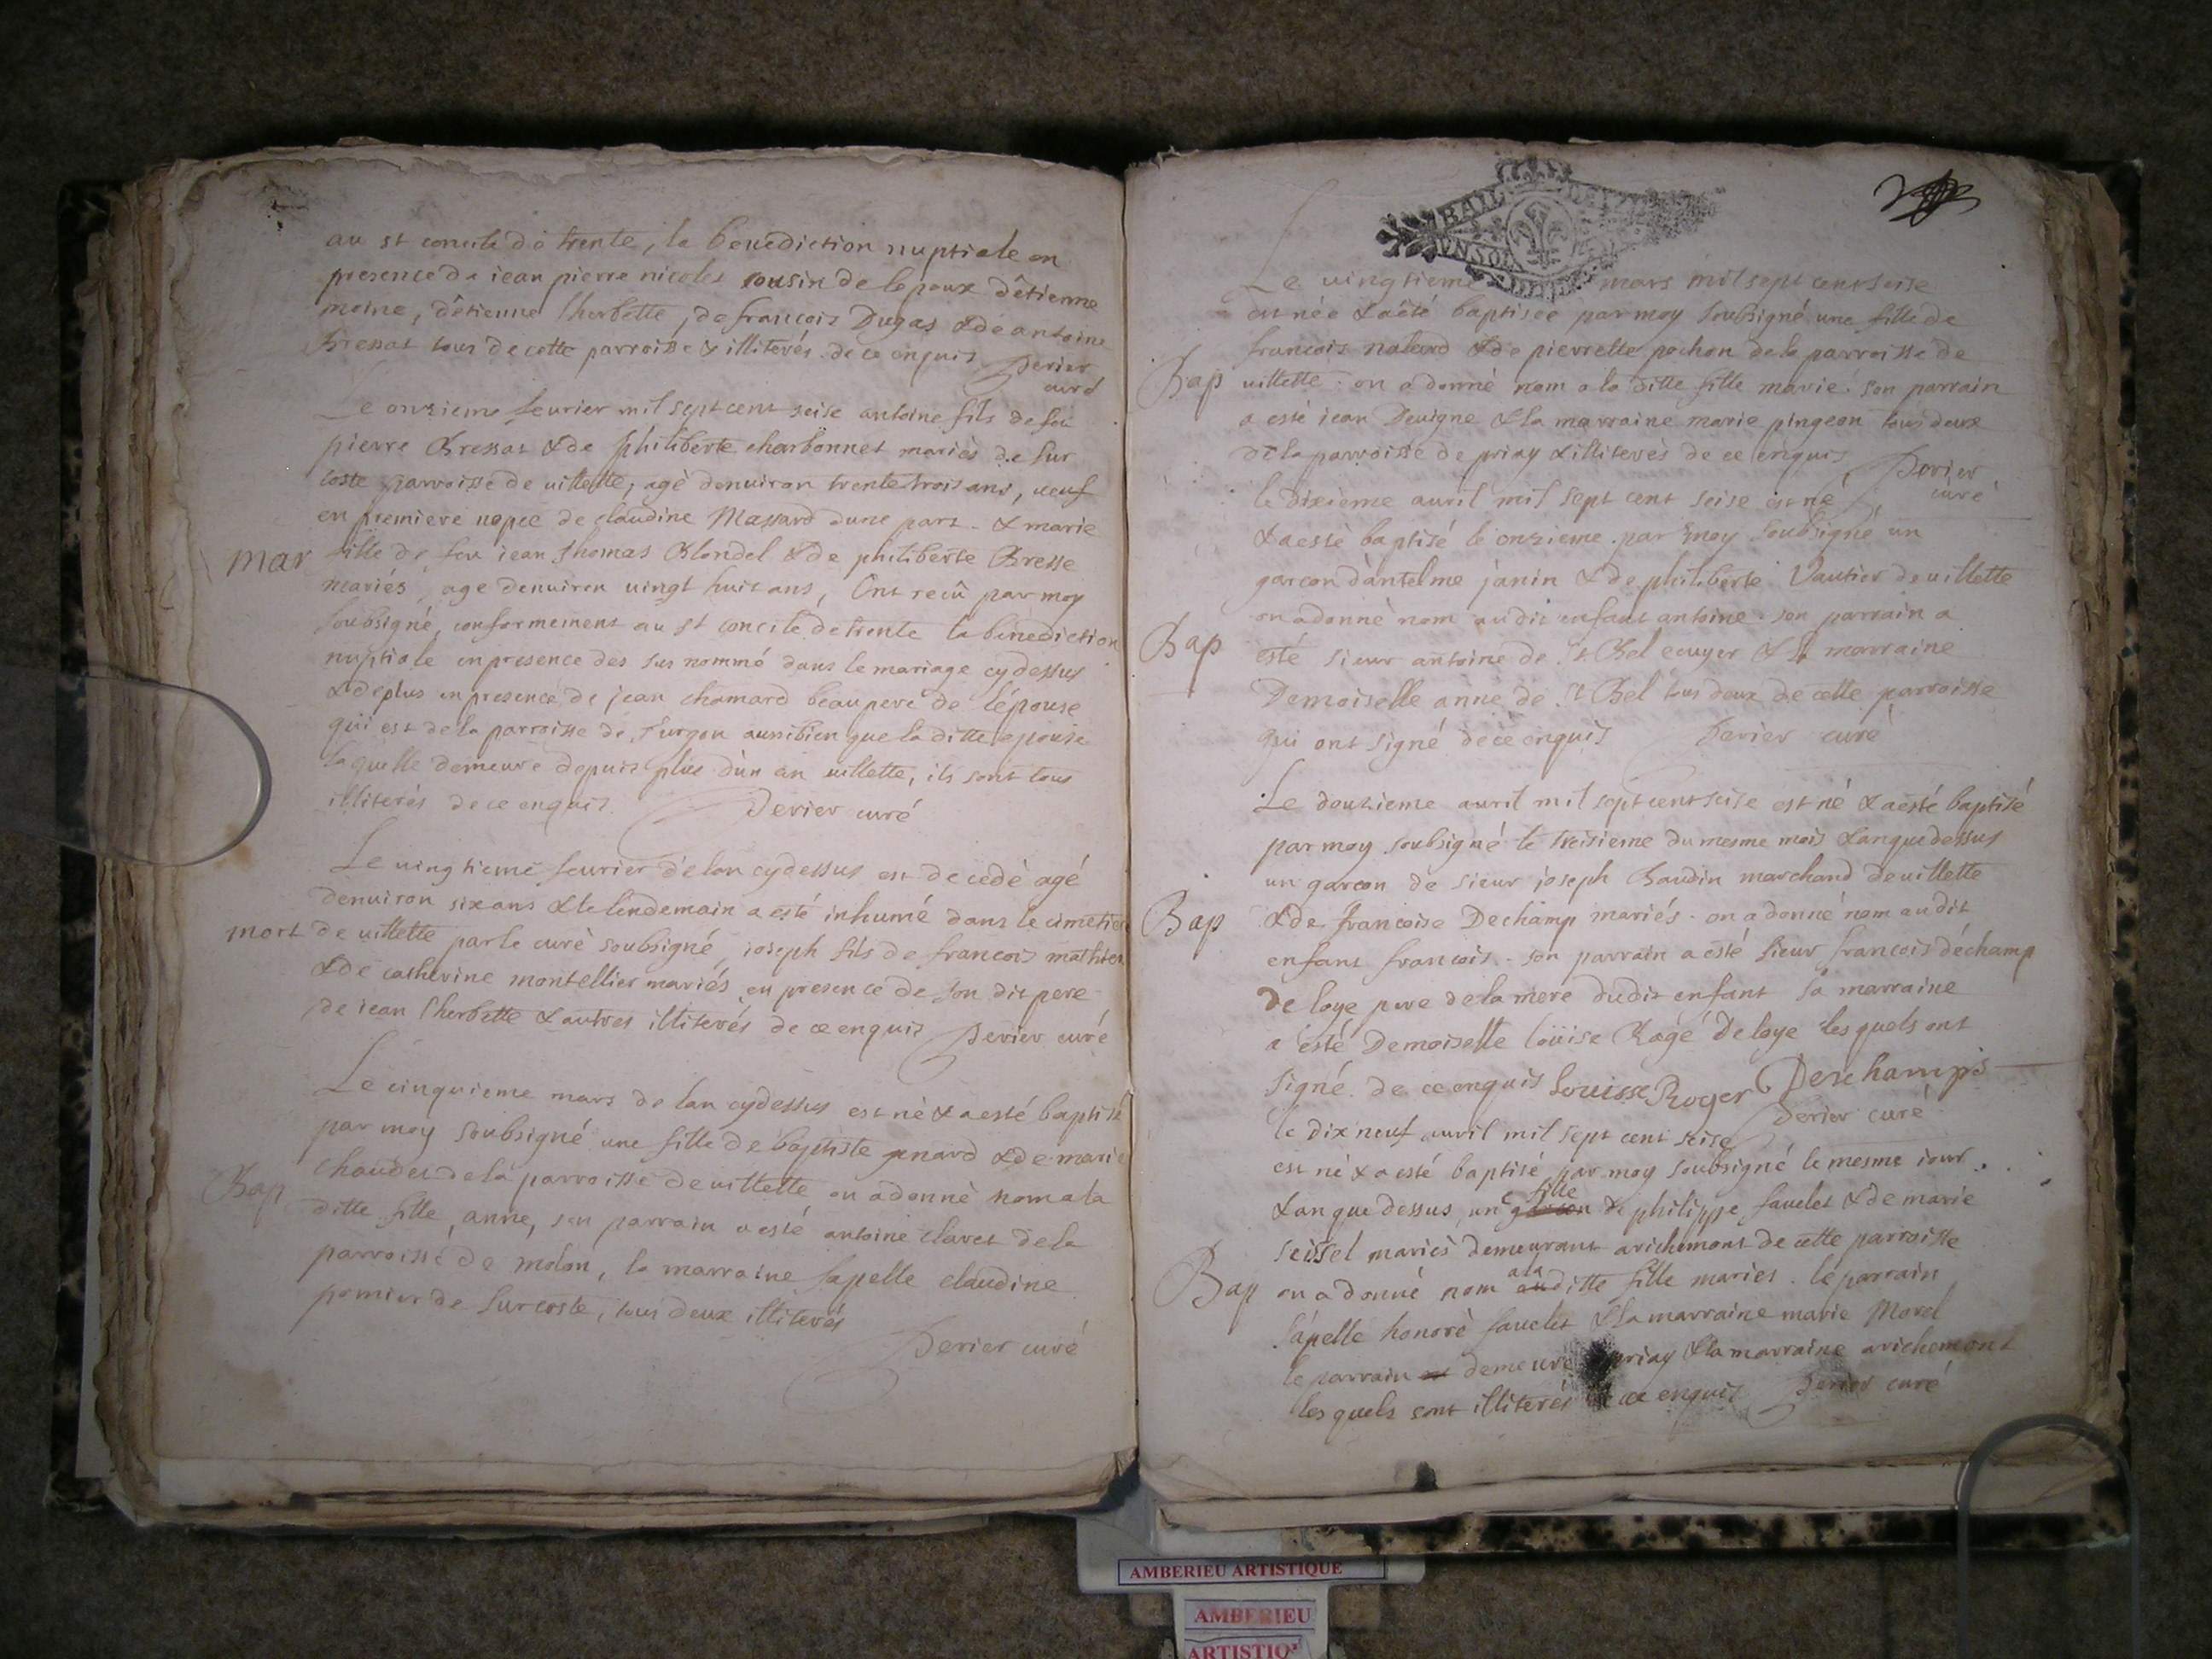 au st concile de trente, la benediction nuptiale en
presence de iean pierre nicolet cousin de lepoux d'étienne
moine, d'étienne lherbette, de francois Dugas & de antoine
Bressat tous de cette parroisse & illiterés de ce enquis Perier
curé
Le onzieme feurier mil sept cent seise antoine fils de feu
pierre Bressat & de philiberte charbonnet mariés de sur
coste parroisse de uillette, agé denuiron trente trois ans, ueuf
en premiere nopce de claudine Massard dune part & marie
mar fille de feu iean thomas Blondel & de philiberte Bresse
mariés, age denuiron uingt huit ans, Ont recû par moy
soubsigné, conformement au st concile de trente la bénediction
nuptiale en presence des sus nommé dans le mariage cydessus
& de plus en presence de jean chamard beaupere de lépouse
qui est de la parroisse de Turgon aussibien que la ditte epouse
laquelle demeure depuis plus d'un an uillette, ils sont tous
illiterés de ce enquis. Perier curé
Le uingtieme feurier de lan cydessus est decedé agé
denuiron six ans & le lendemain a esté inhumé dans le cimetiere
mort de uillette par le curé soubsigné, ioseph fils de francois mathieu
& de catherine montellier mariés en presence de son dit pere
de iean lherbette & autres illiterés de ce enquis Perier curé
Le cinquieme mars de lan cydessus est né & a esté baptisé
par moy soubsigné une fille de baptiste penard & de marie
chaudet de la parroisse de uillette on a donné nom a la
Bap ditte fille, anne, son parrain a esté antoine claret de la
parroisse de molon, la marraine sapelle claudine
pomier de surcoste, tous deux illiterés
Perier curé
BAIL
Le uingtieme mars mil sept cent seise
est née & a été baptisée par moy soubsigné une fille de
francois nalard & de pierrette pochon de la parroisse de
Bap uillette. on a donné nom a la ditte fille marie. son parrain
a esté iean Deuigne & la marraine marie pingeon tous deux
de la parroisse de priay & illiterés de ce enquis Perier
curé
le dixieme auril mil sept cent seise est né
& a esté baptisé le onzieme par moy soubsigné un
garcon d'antelme janin & de philiberte Vautier de uillette
on a donné nom au dit enfant antoine. son parrain a
Bap esté sieur antoine de st Bel ecuyer & la marraine
Demoiselle anne de st Bel tous deux de cette parroisse
qui ont signé de ce enquis Perier curé
Le douzieme auril mil sept cent seise est né & a esté baptisé
par moy soubsigné le treisieme du mesme mois & an que dessus
un garcon de sieur joseph Baudin marchand de uillette
Bap & de francoise Dechamp mariés. on a donné nom au dit
enfant francois. son parrain a esté sieur francois déchamp
de loye pere de la mere du dit enfant sa marraine
a esté Demoiselle loüise Rogé de loye lesquels ont
signé de ce enquis Louisse Roger Deschamps
Perier curé
le dix neuf auril mil sept cent seise
est né & a esté baptisé par moy soubsigné le mesme iour
& an que dessus, un garcon fille de philippe fauelet & de marie
seissel mariés demeurant arichemont de cette parroisse
Bap on a donné nom au a la ditte fille maries. le parrain
s'apelle honoré fauelet & la marraine marie Morel
le parrain demeure priay & la marraine arichemont
lesquels sont illiterés de ce enquis Perier curé
AMBERIEU ARTISTIQUE
AMBERIEU
ARTISTIQ